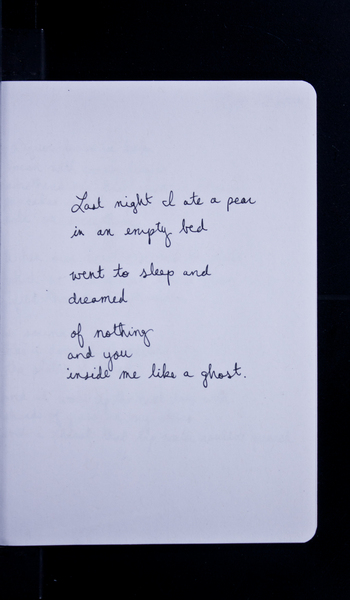 Last night I ate a pear
in an empty bed
went to sleep and
dreamed
of nothing
and you
inside me like a ghost.